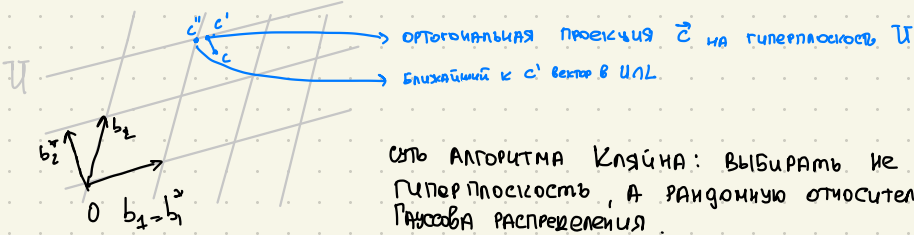 c'' c'
→ ортогональная проекция c⃗ на гиперплоскость U
c
→ ближайший к c' вектор в U∩L
U
b₂* b₂
суть алгоритма Кляйна: выбирать не
гиперплоскость, а рандомную относител
0 b₁=b₁*
Гауссова распределения.